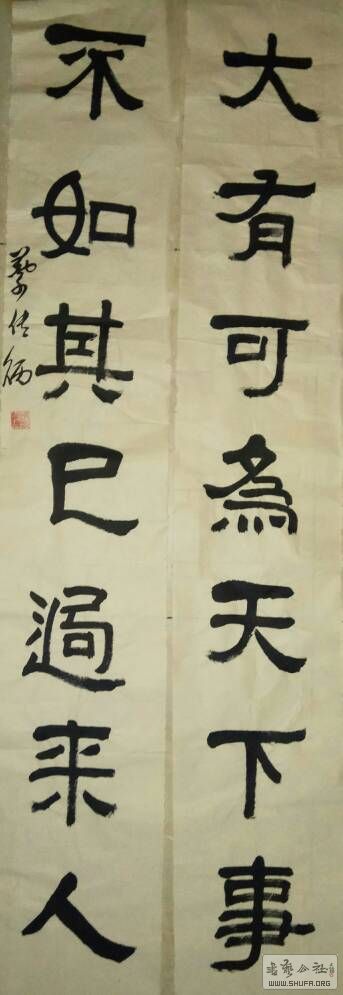 大有可為天下事
不如其已過來人
书艺公社
WWW.SHUFA.ORG